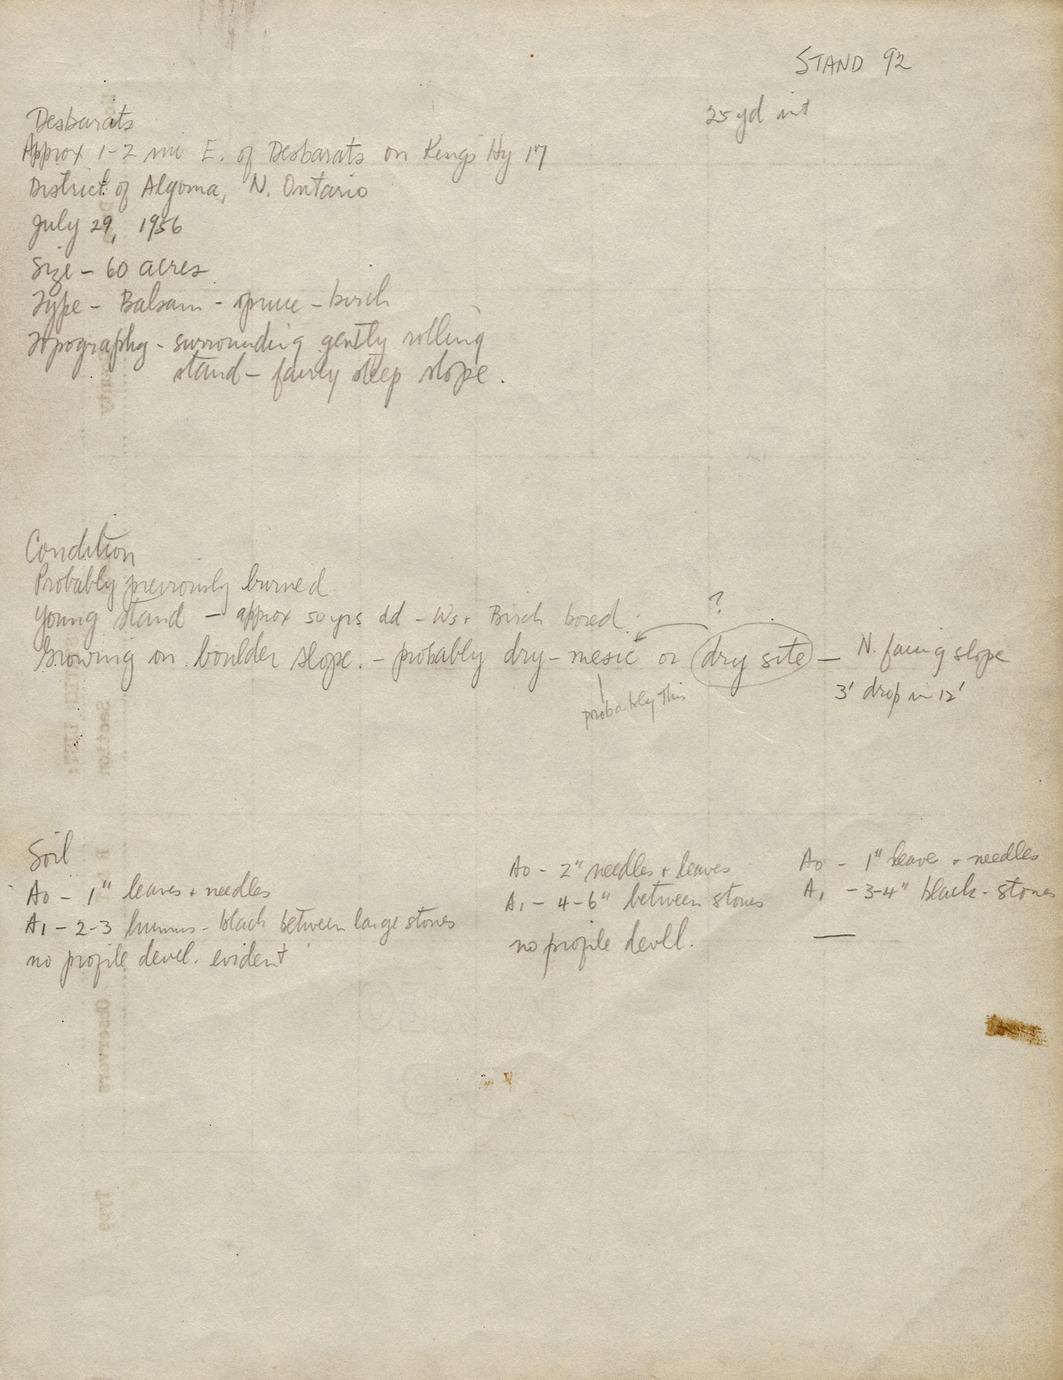 STAND 92
25 yd int
Desbarats
Approx 1-2 mi E. of Desbarats on Kings Hy 17
District of Algoma, N. Ontario
July 29, 1956
Size - 60 acres
Type - Balsam - spruce - birch
Topography - surrounding gently rolling
stand - fairly steep slope.
Condition
Probably previously burned
Young stand - approx 50 yrs old - Ws + Birch bored.
?
Growing on boulder slope. - probably dry-mesic or dry site - N. facing slope
3' drop in 12'
probably this
Soil
Ao - 1" leaves + needles
A1 - 2-3 humus - black between large stones
no profile devel. evident
Ao - 2" needles + leaves
A1 - 4-6" between stones
no profile devell.
Ao - 1" leaves + needles
A1 - 3-4" black - stones
—
County
Section
Observers
Type